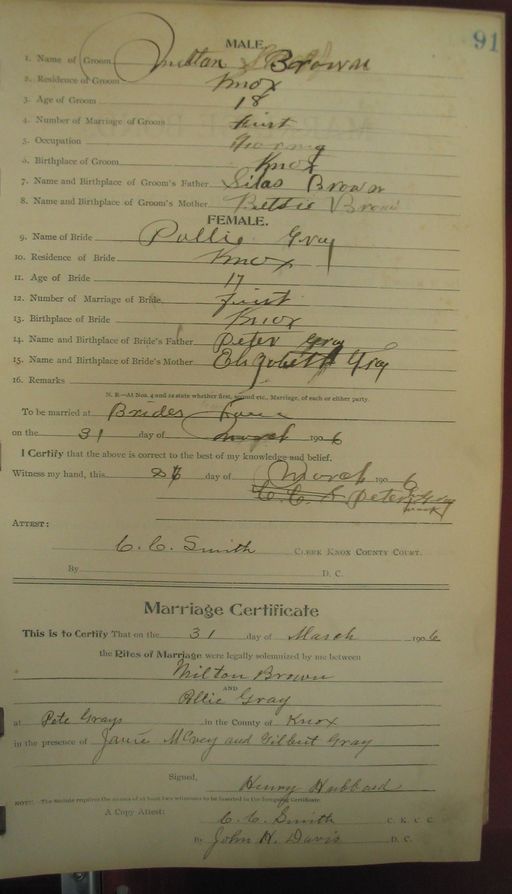 91
MALE.
1. Name of Groom Milton Brown
2. Residence of Groom Knox
3. Age of Groom 18
4. Number of Marriage of Groom First
5. Occupation Farming
6. Birthplace of Groom Knox
7. Name and Birthplace of Groom's Father Silas Brown
8. Name and Birthplace of Groom's Mother Bettie Brown
FEMALE.
9. Name of Bride Pollie Gray
10. Residence of Bride Knox
11. Age of Bride 17
12. Number of Marriage of Bride First
13. Birthplace of Bride Knox
14. Name and Birthplace of Bride's Father Peter Gray
15. Name and Birthplace of Bride's Mother Elizabeth Gray
16. Remarks
N. B.—At Nos. 4 and 12 state whether first, second etc., Marriage, of each or either party.
To be married at Brides
on the 31 day of March 1906
I Certify that the above is correct to the best of my knowledge and belief.
Witness my hand, this day of March 1906
Peter Gray
mark
ATTEST:
C. C. Smith CLERK KNOX COUNTY COURT.
By D. C.
Marriage Certificate
This is to Certify That on the 31 day of March 1906
the Rites of Marriage were legally solemnized by me between
Milton Brown
AND
Ollie Gray
at Pete Grays in the County of Knox
in the presence of Janie McVey and Gilbert Gray
Signed, Henry Hubbard
NOTE.—The Statute requires the names of at least two witnesses to be inserted in the foregoing Certificate.
A Copy Attest: C. C. Smith C. K. C. C.
By John H. Davis D. C.